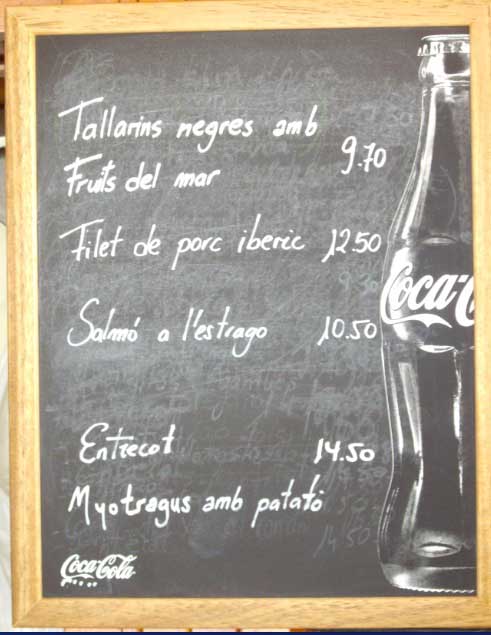 Tallarins negres amb
Fruits del mar 9.70
Filet de porc iberic 12.50
Salmó a l'estrago 10.50
Entrecot 14.50
Myotragus amb patató
Coca-Cola
Coca-C